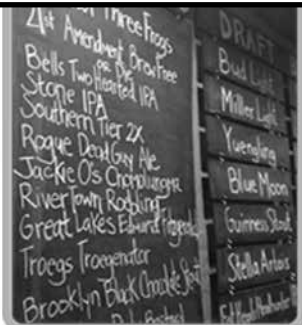 Three Frogs
21st Amendment Brew Free
or Die
Bells Two Hearted IPA
Stone IPA
Southern Tier 2X
Rogue Dead Guy Ale
Jackie O's Chomolungma
RiverTown Roebling
Great Lakes Edmund Fitzgerald
Troegs Troegenator
Brooklyn Black Chocolate Stout
Bastard
DRAFT
Bud Light
Miller Light
Yuengling
Blue Moon
Guinness Stout
Stella Artois
Fat Head's Headhunter